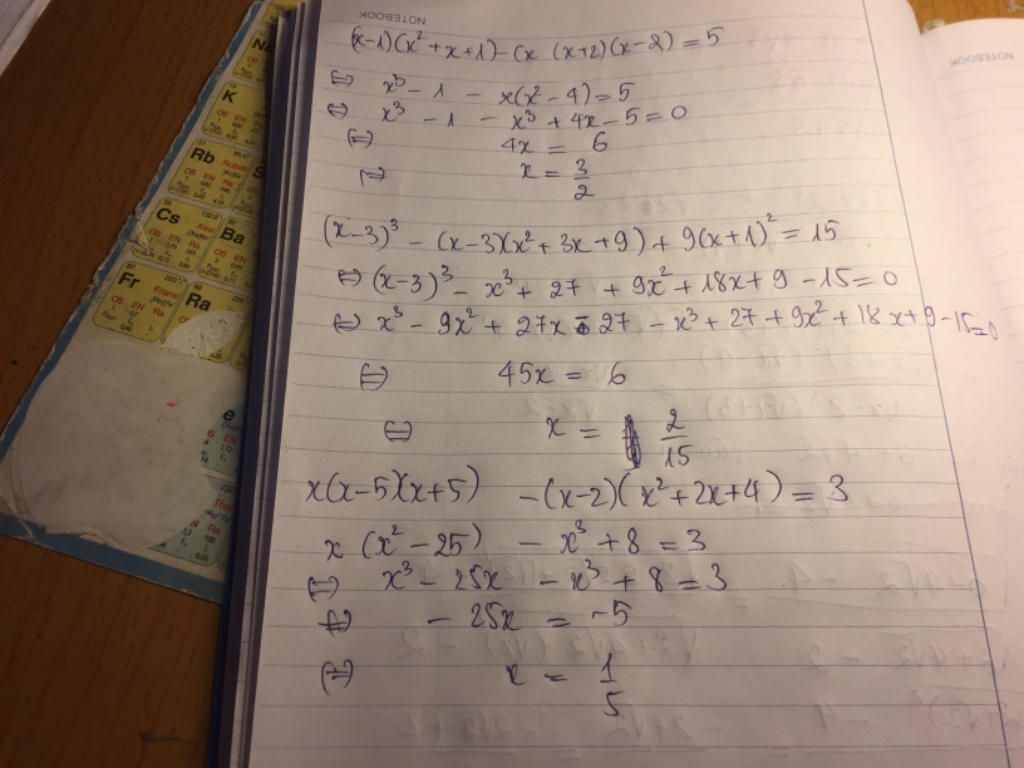 NOTEBOOK
NOTEBOOK
(x-1)(x² + x + 1) - (x (x+2)(x-2) = 5
⇔ x³ - 1 - x(x² - 4) = 5
⇔ x³ - 1 - x³ + 4x - 5 = 0
⇔ 4x = 6
x = 3/2
(x-3)³ - (x-3)(x² + 3x + 9) + 9(x+1)² = 15
⇔ (x-3)³ - x³ + 27 + 9x² + 18x + 9 - 15 = 0
⇔ x³ - 9x² + 27x - 27 - x³ + 27 + 9x² + 18x + 9 - 15 = 0
⇔ 45x = 6
⇔ x = 2/15
x(x-5)(x+5) - (x-2)(x² + 2x + 4) = 3
x (x² - 25) - x³ + 8 = 3
⇔ x³ - 25x - x³ + 8 = 3
⇔ - 25x = -5
⇔ x = 1/5
Na
K
Rb
Cs
Ba
Fr
Ra